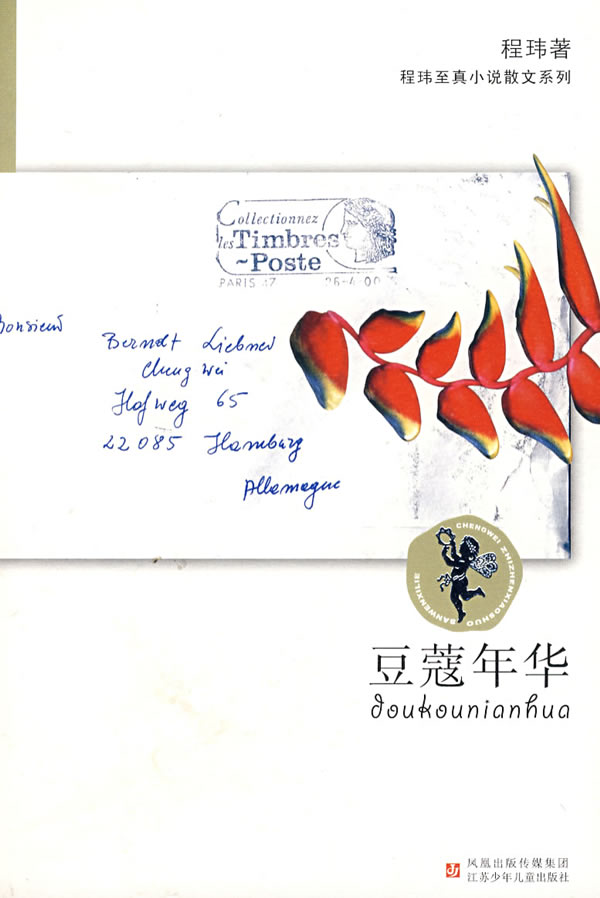 程玮著
程玮至真小说散文系列
Collectionnez
les Timbres
~Poste
PARIS 17 26-4-00
Monsieur
Berndt Liebner
Cheng Wei
Hofweg 65
22085 Hamburg
Allemagne
CHENGWEI ZHIZHENXIAOSHUO SANWENXILIE
豆蔻年华
doukounianhua
凤凰出版传媒集团
江苏少年儿童出版社